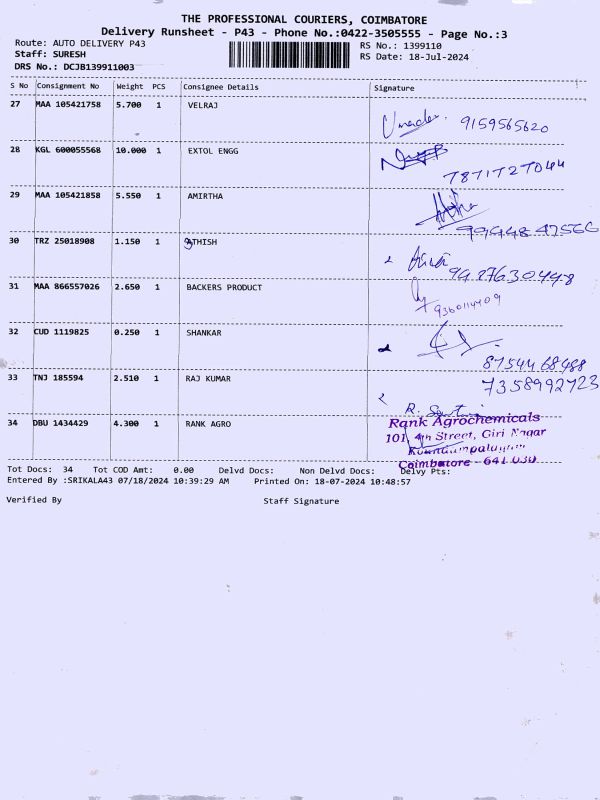 THE PROFESSIONAL COURIERS, COIMBATORE
Delivery Runsheet - P43 - Phone No.:0422-3505555 - Page No.:3
Route: AUTO DELIVERY P43 RS No.: 1399110
Staff: SURESH RS Date: 18-Jul-2024
DRS No.: DCJB139911003
S No Consignment No Weight PCS Consignee Details Signature
27 MAA 105421758 5.700 1 VELRAJ
9159565620
28 KGL 600055568 10.000 1 EXTOL ENGG
7871727044
29 MAA 105421858 5.550 1 AMIRTHA
9944847566
30 TRZ 25018908 1.150 1 ATHISH
9487630448
31 MAA 866557026 2.650 1 BACKERS PRODUCT
9360114409
32 CUD 1119825 0.250 1 SHANKAR
8754468488
33 TNJ 185594 2.510 1 RAJ KUMAR
7358992723
R.
34 DBU 1434429 4.300 1 RANK AGRO
Rank Agrochemicals
101, 4th Street, Giri Nagar
Koundampalayam
Coimbatore - 641 030
Tot Docs: 34 Tot COD Amt: 0.00 Delvd Docs: Non Delvd Docs: Delvy Pts:
Entered By :SRIKALA43 07/18/2024 10:39:29 AM Printed On: 18-07-2024 10:48:57
Verified By Staff Signature